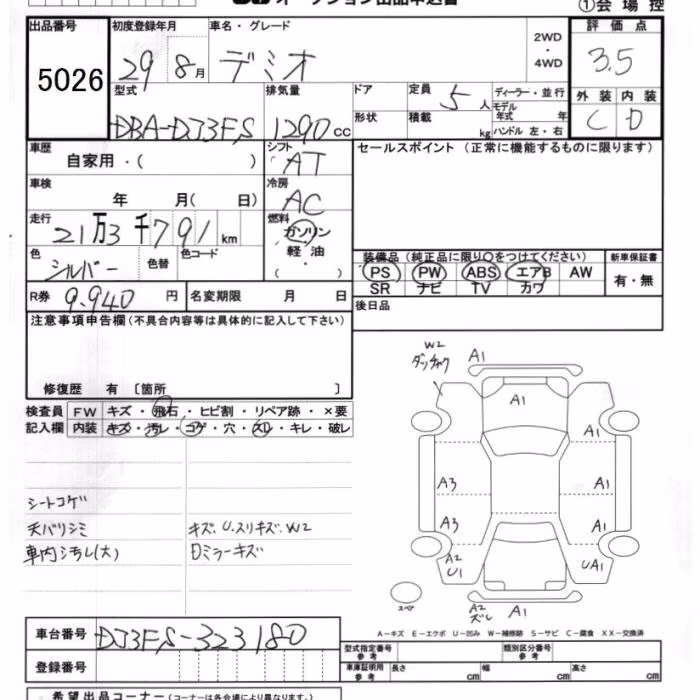 オークション出品申込書
①会場控
出品番号 5026
初度登録年月 29 8月
車名・グレード デミオ
2WD・4WD
評価点 3.5
型式 DBA-DJ3FS
排気量 1290cc
ドア
形状
定員 5人
積載 kg
ディーラー・並行
モデル年式 年
ハンドル 左・右
外装 C
内装 D
車歴 自家用・( )
シフト AT
セールスポイント (正常に機能するものに限ります)
車検 年 月( 日)
冷房 AC
走行 21万3千791km
燃料 ガソリン 軽油 ・( )
色 シルバー 色替 色コード
装備品 (純正品に限り○をつけてください)
PS PW ABS エアB AW
SR ナビ TV カワ
新車保証書 有・無
R券 9.940円
名変期限 月 日
後日品
注意事項申告欄 (不具合内容等は具体的に記入して下さい)
修復歴 有 〔箇所 〕
検査員記入欄
FW キズ・飛石・ヒビ割・リペア跡・×要
内装 キズ・汚レ・コゲ・穴・スレ・キレ・破レ
シートコゲ
天バリシミ
車内汚レ(大)
キズ、U、スリキズ、W2
Dミラーキズ
W2
A1
A1
A1
A1
A3
A3
A1
A1
A2
U1
UA1
スペア
A2
ズレ
A1
A-キズ E-エクボ U-凹み W-補修跡 S-サビ C-腐食 XX-交換済
車台番号 DJ3FS-323180
登録番号
型式指定番号 参考
類別区分番号 参考
車庫証明用 参考 長さ cm 幅 cm 高さ cm
希望出品コーナー(コーナーは各会場により異なります。)